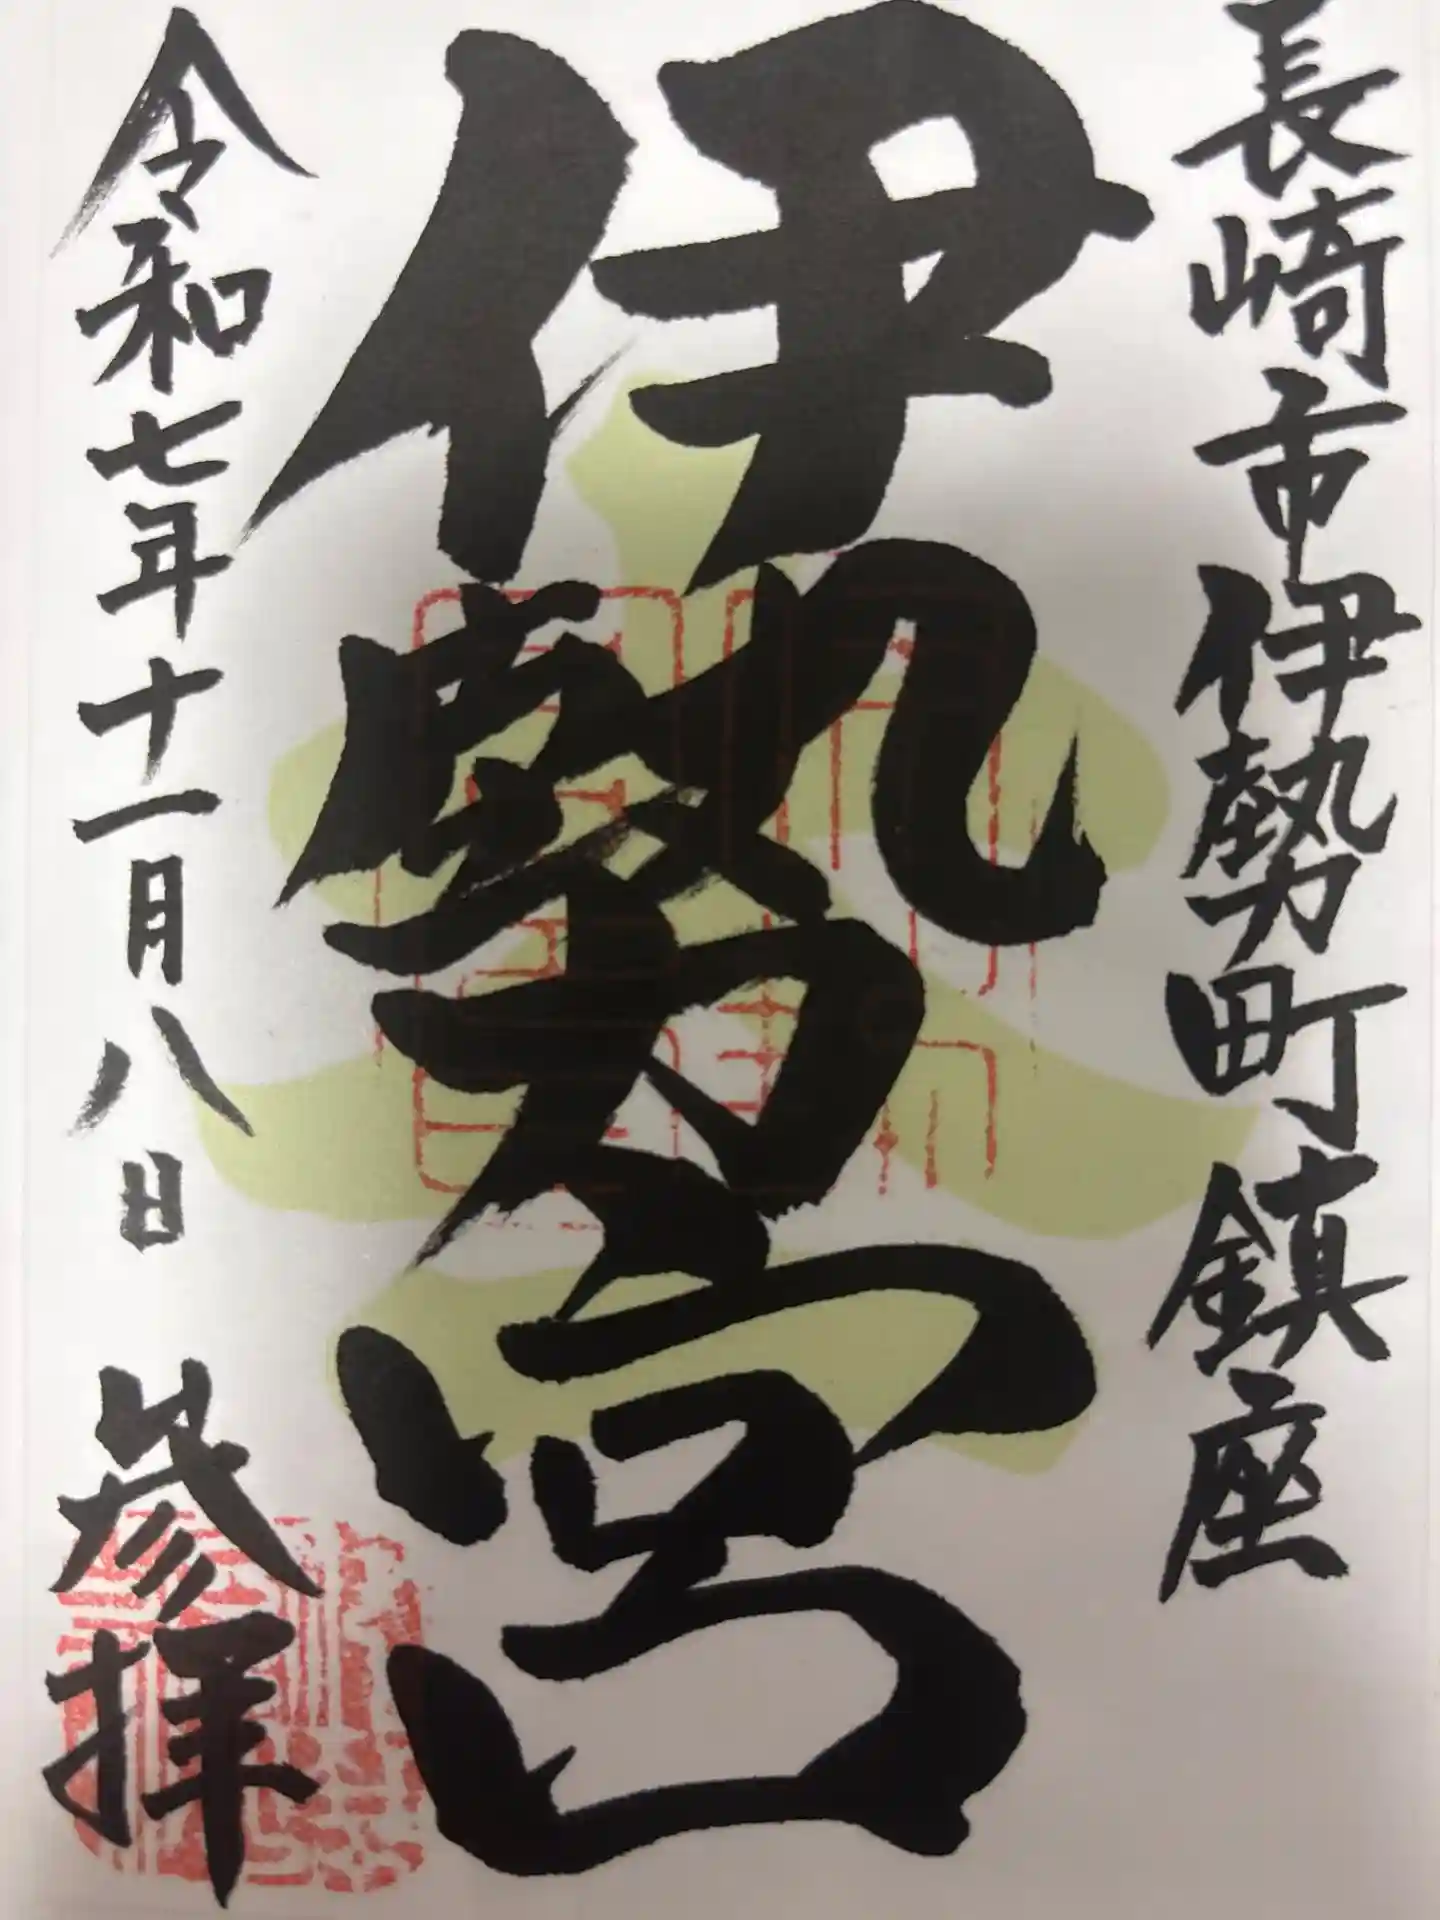 長崎市伊勢町鎮座
伊勢宮
令和七年十一月八日 參拝